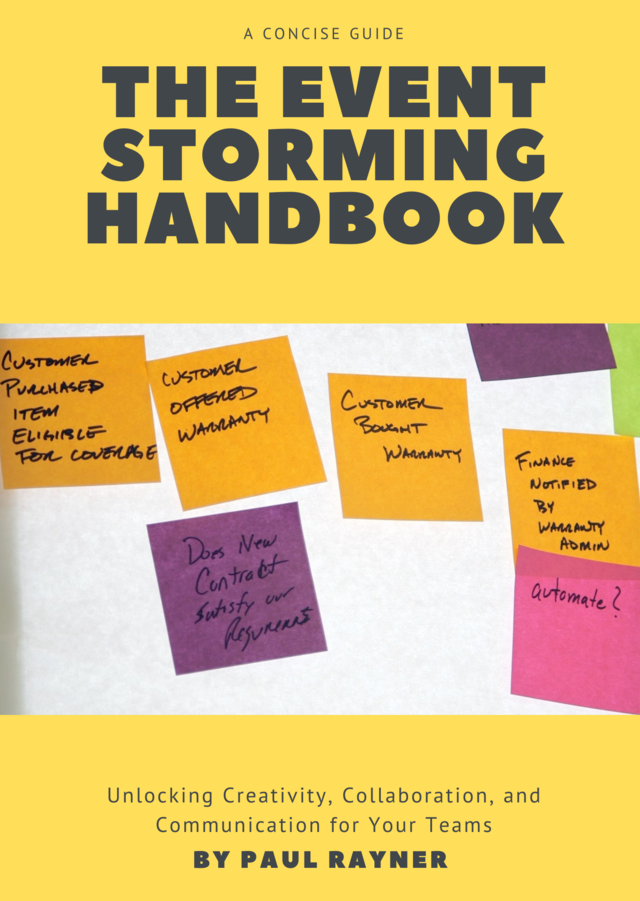 A CONCISE GUIDE
THE EVENT
STORMING
HANDBOOK
CUSTOMER
PURCHASED
ITEM
ELIGIBLE
FOR COVERAGE
CUSTOMER
OFFERED
WARRANTY
CUSTOMER
BOUGHT
WARRANTY
FINANCE
NOTIFIED
BY
WARRANTY
ADMIN
Does New
Contract
Satisfy our
automate?
Unlocking Creativity, Collaboration, and
Communication for Your Teams
BY PAUL RAYNER